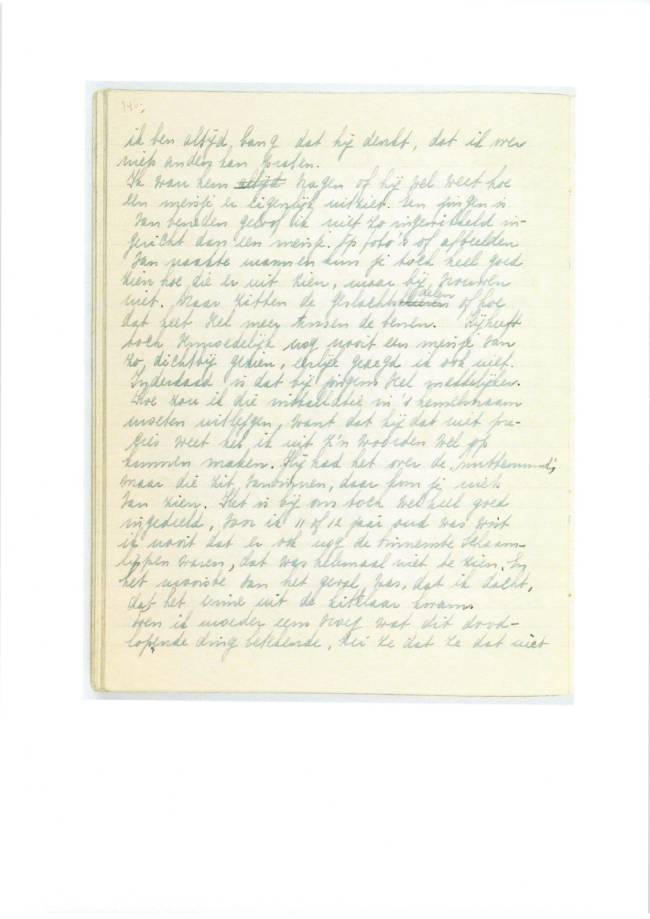 140.
ik ben altijd bang dat hij denkt, dat ik over
niets anders kan praten.
Ik wou hem altijd vragen of hij wel weet hoe
een meisje er eigenlijk uitziet. Een jongen is
van beneden geloof ik niet zo ingewikkeld in-
gericht dan een meisje. Op foto's of afbeelden
van naakte mannen kun je toch heel goed
zien hoe die er uit zien, maar bij vrouwen
niet. Daar zitten de geslachtsdelen of hoe
dat heet veel meer tussen de benen. Hij heeft
toch vermoedelijk nog nooit een meisje van
zo dichtbij gezien, eerlijk gezegd ik ook niet.
Inderdaad is dat bij jongens veel makkelijker.
Hoe zou ik die installatie in 's hemelsnaam
moeten uitleggen, want dat hij dat niet pre-
cies weet heb ik uit z'n woorden wel op
kunnen maken. Hij had het over de "muttermund",
maar die zit vanbinnen, daar kun je niets
van zien. Het is bij ons toch wel heel goed
ingedeeld, voor ik 11 of 12 jaar oud was wist
ik nooit dat er ook nog de binnenste schaam-
lippen waren, dat was helemaal niet te zien. En
het mooiste van het geval was, dat ik dacht,
dat het urine uit de kittelaar kwam.
Toen ik moeder eens vroeg wat dit dood-
lopende ding betekende, zei ze dat ze dat niet